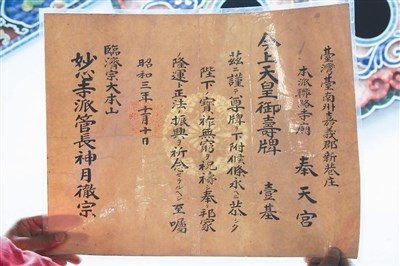 臺灣臺南州嘉義郡新巷庄
本派聯絡寺廟 奉天宮
今上天皇御壽牌 壹基
茲ニ謹テ尊牌ヲ下附候條永ク恭シク
陛下ノ寶祚無窮ヲ祝祷シ奉リ邦家
ノ隆運ト正法ノ振興ヲ祈念セラルヘシ至囑
昭和三年十一月十日
臨濟宗大本山
妙心寺派管長神月徹宗